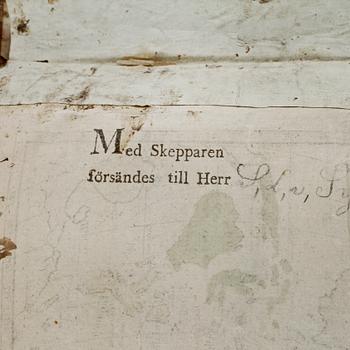 Med Skepparen
försändes till Herr